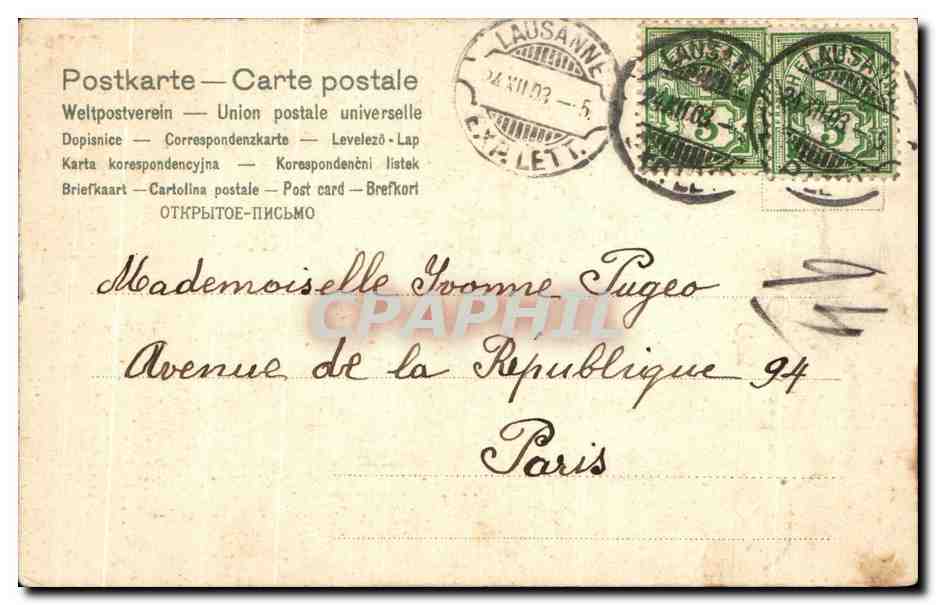 Postkarte — Carte postale
Weltpostverein — Union postale universelle
Dopisnice — Correspondenzkarte — Levelező-Lap
Karta korespondencyjna — Korespondenční listek
Briefkaart — Cartolina postale — Post card — Brefkort
ОТКРЫТОЕ-ПИСЬМО
LAUSANNE
24.XII.03 — 5
EXP. LETT.
LAUSAN
24.XII.03 –
5
LAUSANN
24.XII.03
5
Mademoiselle Yvonne Pugeo
CPAPHIL
Avenue de la République 94
Paris